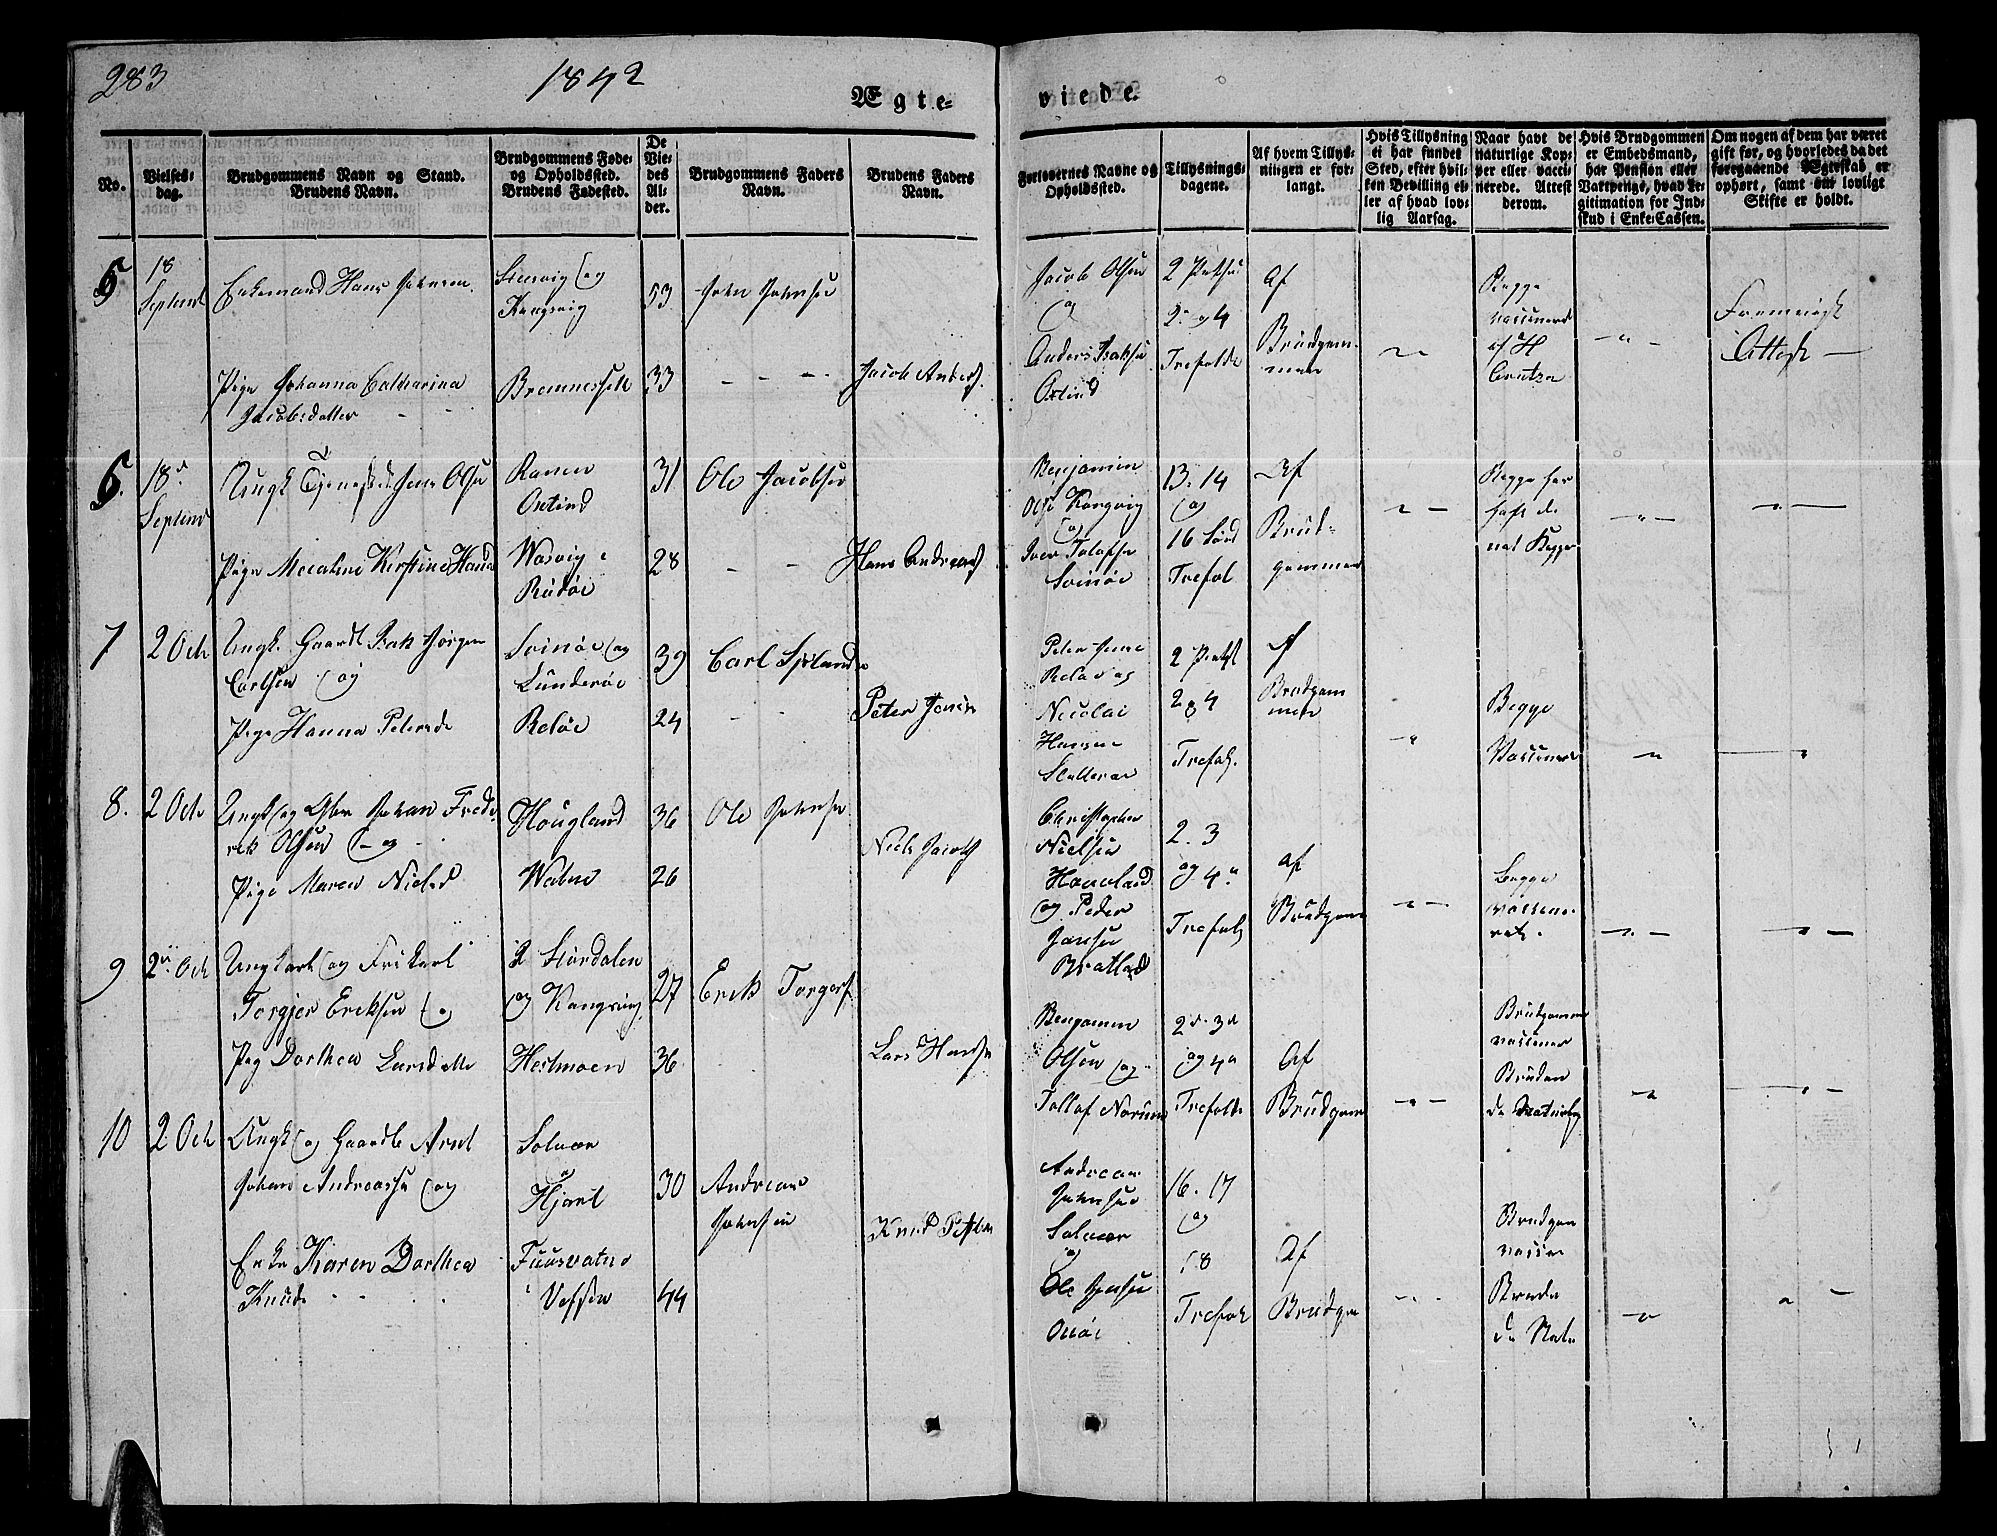 283
1842
Ægte=
viede.
No.
Vielses-
dag.
Brudgommens Navn og Stand.
Brudens Navn.
Brudgommens Føde-
og Opholdssted.
Brudens Fødested.
De
Vie-
des
Al-
der.
Brudgommens Faders
Navn.
Brudens Faders
Navn.
Forlovernes Navne og
Opholdssted.
Tillysnings-
dagene.
Af hvem Tillys-
ningen er for-
langt.
Hvis Tillysning
ei har fundet
Sted, efter hvil-
ken Bevilling el-
ler af hvad lov-
lig Aarsag.
Naar have de
naturlige Kop-
per eller vacci-
nerede. Attest
derom.
Hvis Brudgommen
er Embedsmand,
har Pension eller
Vartpenge, hvad Le-
gitimation for Ind-
skud i Enke-Cassen.
Om nogen af dem har været
gift før, og hvorledes da det
foregaaende Ægteskab er
ophørt, samt om lovligt
Skifte er holdt.
5
18
Septemb
Enkemand Hans Johnsen
og
Kongsvig
53
John Johnsen
Jacob Olsen
og
Anders Isaksen
Oxtind
2
2 og 4
Trefoldi
Af
Brudgom-
men
Begge
vaccinered
Fremviist
Attest
Pige Johanna Catharina
Jacobsdatter
33
Jacob Anders.
6.
18d
Septemb
Ungk Jens Olsen
Ranen
Oxtind
31
Ole Jacobsen
Benjamin
Olsen Kongsvig
og
Svinøe
13. 14
og
16 Sønd
Trefol
Af
Brud-
gommen
Begge har
haft de
nat Kopper
Pige Mecaline Kirstine Hansd
Wasvig i
Rødøe
28
Hans Andreas
7
2 Och
Ungk. Gaardb Isak Jørgen
Carlsen og
Sviinøe og
Lunderøe
39
Carl
Peter Jens
Reløe og
Nicolai
Hansen
2
2 & 4
Trefol.
Af
Brudgom
men
Begge
Vaccinered
Pige Hanna Petersd
Reløe
24
Peter Jensen
8.
2 Och
Ungk og Johan Frede-
rik Olsen og
Hougland
36
Ole Johnsen
Niels Jacobs
Christopher
Nielsen
Hougland
og Peder
Jansen
Bratland
2. 3
og 4.
Trefol
af
Brudgom
Begge
vaccine-
rede.
Pige Maren Nielsd
26
9
2 Och
Ungkarl og
Torgjer Eriksen og
Størdalen
og Kongsvig
27
Erik Torgers
Lars Hansen
Benjamin
Olsen og
Tollef
2d 3d
og 4
Trefold
Af
Brudgom
Brudgommen
vaccineret
Bruden
de Naturlig
Pig Dorthea Larsdatte
Hestmoen
36
10
2 Och
Ungk og Gaardb Arnt
Johan Andreassen og
Solvær
Hjart
30
Andreas
Johnsen
Knud
Andreas
Johnsen
Solvær
og
Ole Jensen
16. 17
og
18
Trefol
Af
Brudgom
Brudgom
vaccine
Bruden
de Natu
Enke Karen Dorthea
Knuds
Fuusvatne
i Vefsen
44